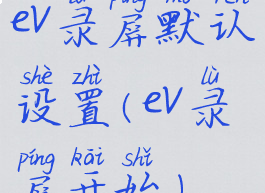 eV录屏默认
shè zhì lù
设置(eV录
píng kāi shǐ
屏开始)